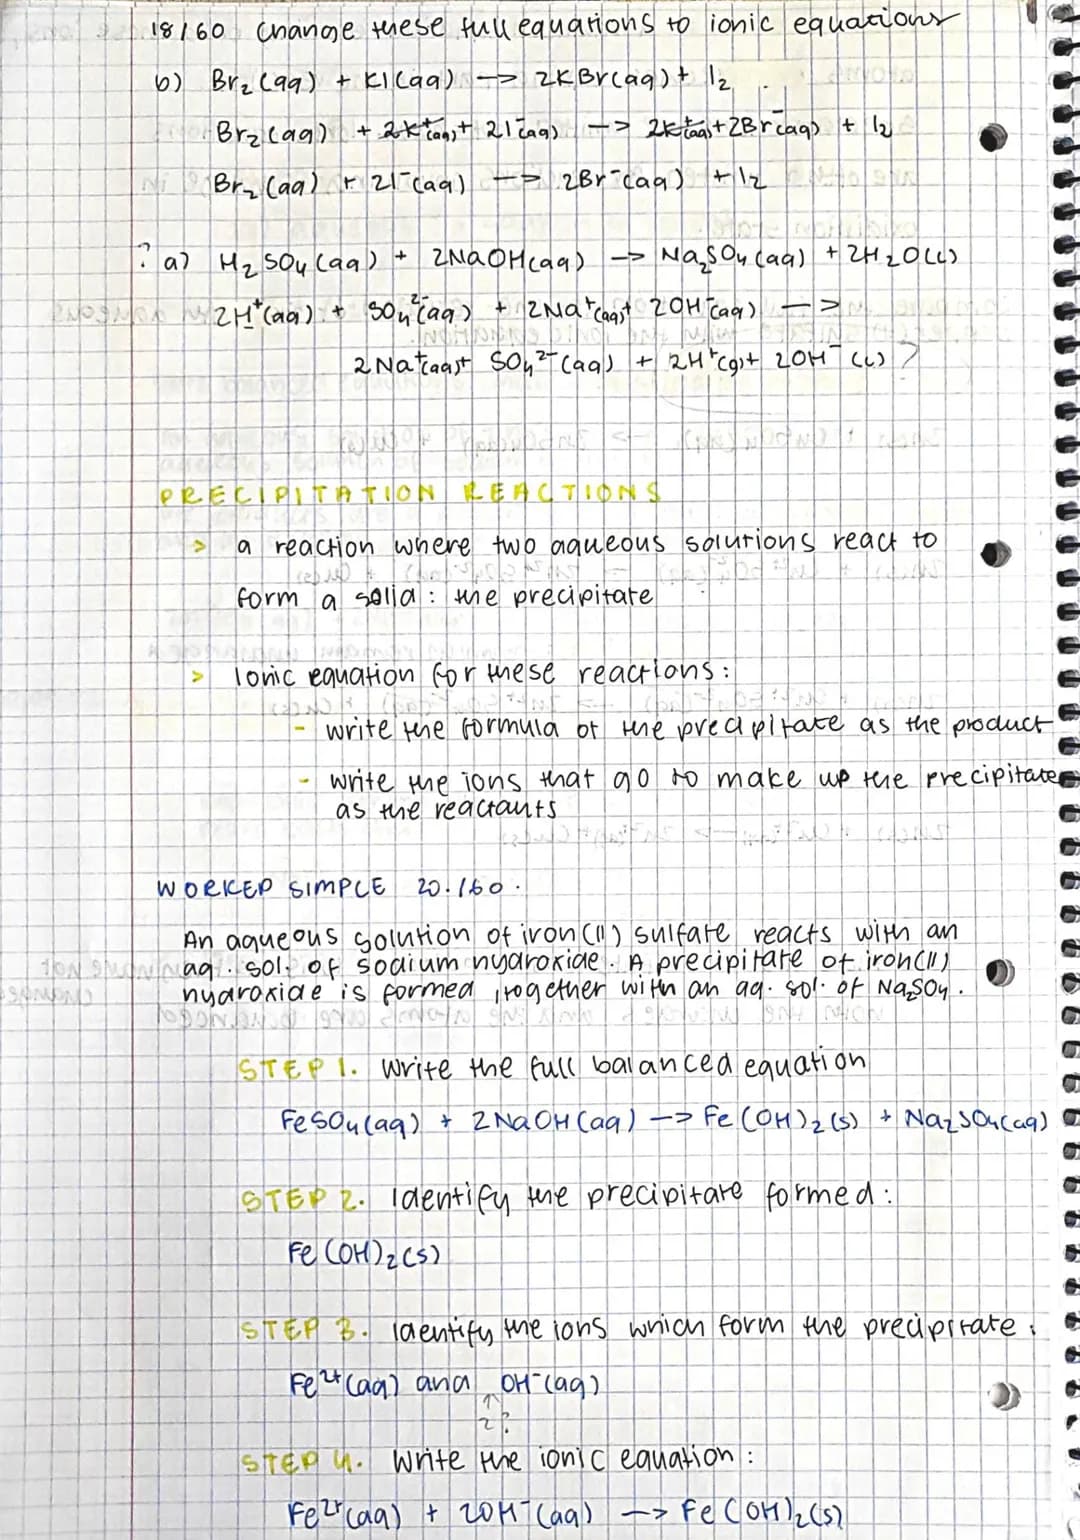 18/60 Change these full equations to ionic equations
b) Br₂ (aq) + KI (aq) → 2KBr(aq) + I₂
Br₂ (aq) + 2K⁺(aq) + 2I⁻(aq) → 2K⁺(aq) + 2Br⁻(aq) + I₂
Br₂ (aq) + 2I⁻(aq) → 2Br⁻(aq) + I₂
? a) H₂SO₄ (aq) + 2NaOH(aq) → Na₂SO₄ (aq) + 2H₂O(l)
2H⁺(aq) + SO₄²⁻(aq) + 2Na⁺(aq)+ 2OH⁻(aq) →
2Na⁺(aq)+ SO₄²⁻(aq) + 2H⁺(g)+ 2OH⁻(l) ?
PRECIPITATION REACTIONS
> a reaction where two aqueous solutions react to
form a solid : the precipitate
> Ionic equation for these reactions :
- write the formula of the precipitate as the product
- write the ions that go to make up the precipitate
as the reactants
WORKED SIMPLE 20./60.
An aqueous solution of iron(II) sulfate reacts with an
aq. sol. of sodium hydroxide. A precipitate of iron(II)
hydroxide is formed, together with an aq. sol. of Na₂SO₄.
STEP 1. Write the full balanced equation
FeSO₄(aq) + 2NaOH(aq) → Fe(OH)₂(s) + Na₂SO₄(aq)
STEP 2. Identify the precipitate formed :
Fe(OH)₂(s)
STEP 3. Identify the ions which form the precipitate :
Fe²⁺(aq) and OH⁻(aq)
↑
2?
STEP 4. Write the ionic equation :
Fe²⁺(aq) + 2OH⁻(aq) → Fe(OH)₂(s)